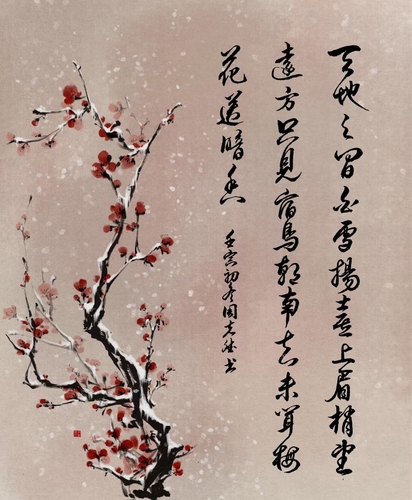 天地之間白雪揚喜上眉梢望
遠方只見宿鳥朝南去未聞梅
花送暗香
壬寅初冬周书